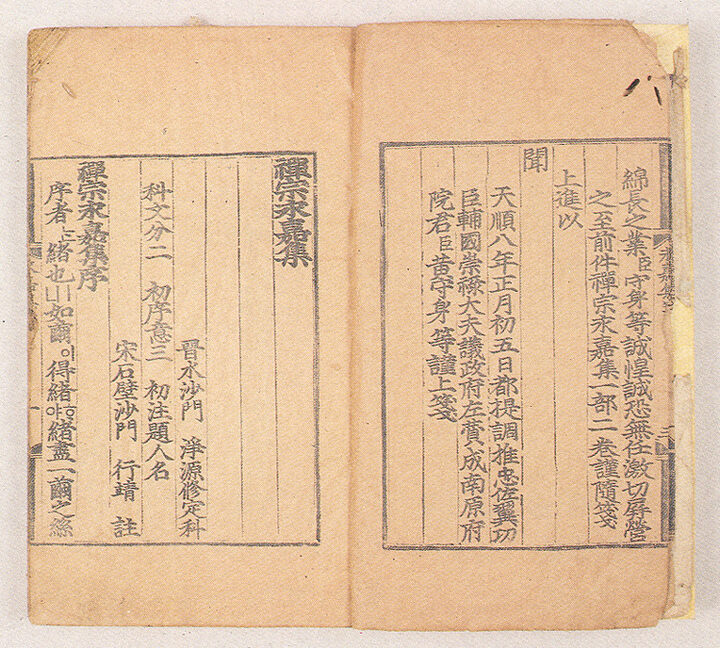 綿長之業臣守身等誠惶誠恐無任激切屛營
之至前件禪宗永嘉集一部二卷謹隨箋
上進以
聞
天順八年正月初五日都提調推忠佐翼功
臣輔國崇祿大夫議政府左贊成南原府
院君臣黃守身等謹上箋
禪宗永嘉集
晉水沙門 淨源修定科
科文分二 初序意三 初注題人名
宋石壁沙門 行靖 註
禪宗永嘉集序
序者 緖也 如繭이得緖 緖盡一繭之絲